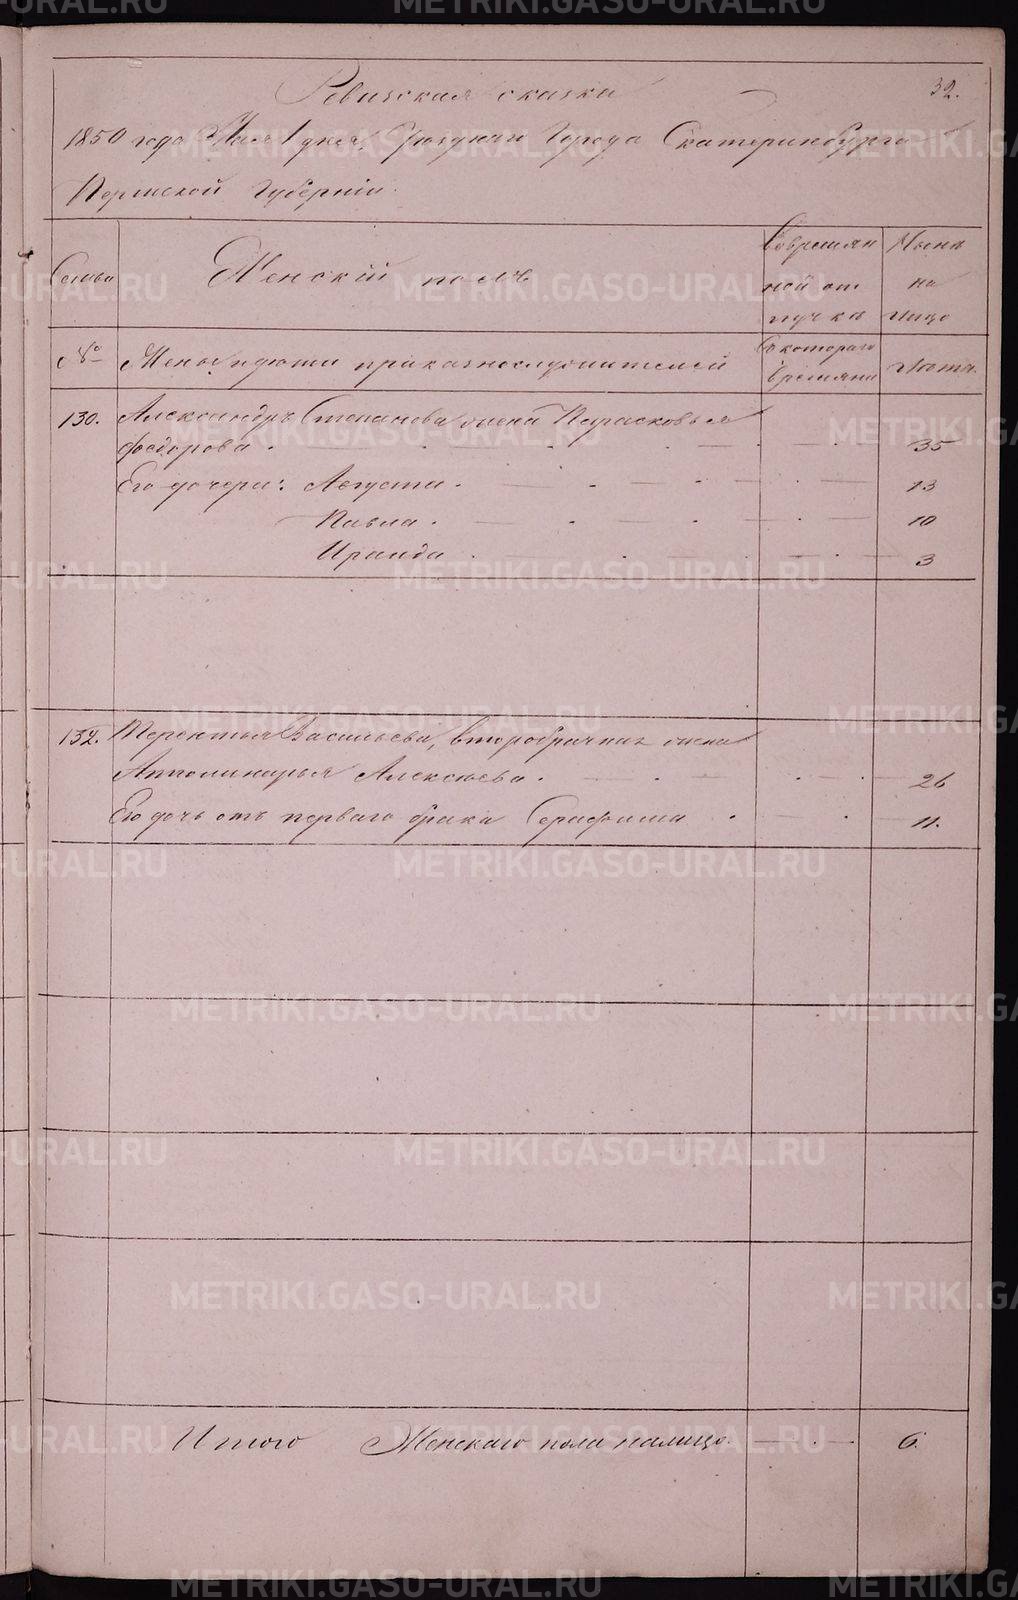 Ревизская сказка
32.
1850 года Мая 1 дня, Города Екатеринбурга
Пермской Губерніи.
Семьи
Женскій полъ
Во времян
ной от
лучкѣ
Нынѣ
на
лицо
№
Жены и дѣти приказнослужителей
Съ котораго
времяни
Лѣта.
130.
Александръ Степанова жена Парасковья
Фодорова.
35
Его дочери: Августа.
13
Павла.
10
Ираида.
3
132.
Терентья Васильева, второбрачная жена
Апполинарья Алексѣева.
26
Его дочь отъ перваго брака Серафима.
11.
Итого Женскаго пола налицо.
6.
METRIKI.GASO-URAL.RU